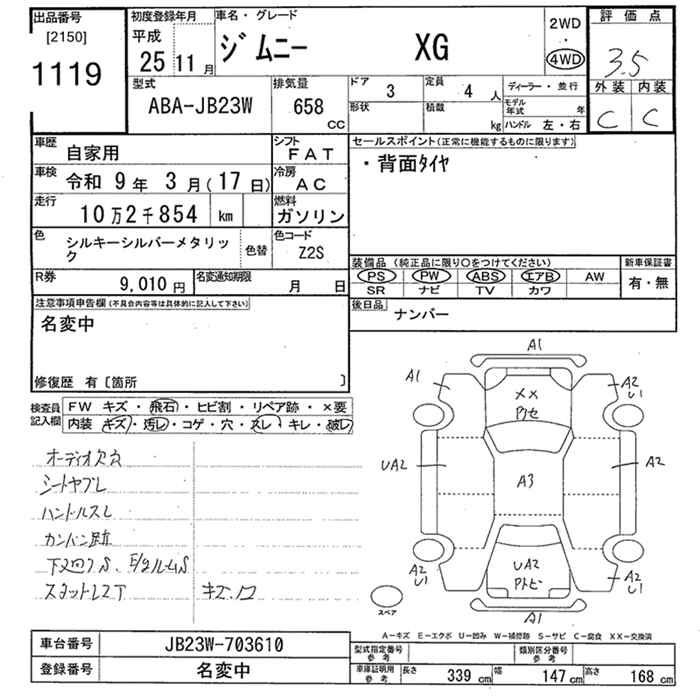 出品番号
[2150]
1119
初度登録年月
平成
25 11月
車名・グレード
ジムニー XG
2WD
・
4WD
評価点
3.5
外装 内装
C C
型式
ABA-JB23W
排気量
658
CC
ドア 3
形状
定員 4 人
積載 kg
ディーラー・並行
モデル年式 年
ハンドル 左・右
車歴 自家用
シフト FAT
車検 令和 9年 3月(17日)
冷房 AC
走行 10万2千854 km
燃料 ガソリン
色 シルキーシルバーメタリック
色替
色コード Z2S
R券 9,010円
名変通知期限 月 日
セールスポイント(正常に機能するものに限ります)
・背面タイヤ
装備品(純正品に限り〇をつけてください)
PS PW ABS エアB AW
SR ナビ TV カワ
新車保証書
有・無
後日品 ナンバー
注意事項申告欄(不具合内容等は具体的に記入して下さい)
名変中
修復歴 有〔箇所 〕
検査員記入欄
FW キズ・飛石・ヒビ割・リペア跡・×要
内装 キズ・汚レ・コゲ・穴・スレ・キレ・破レ
オーディオ欠品
シートヤブレ
ハンドルスレ
カンバン跡
スタットレス下
A1
A1
A2
U1
××
UA2
A3
A2
UA2
A2
U1
A2
U1
A1
スペア
A-キズ E-エクボ U-凹み W-補修跡 S-サビ C-腐食 XX-交換済
車台番号 JB23W-703610
登録番号 名変中
型式指定番号
参考
類別区分番号
参考
車庫証明用
参考
長さ 339cm 幅 147cm 高さ 168cm